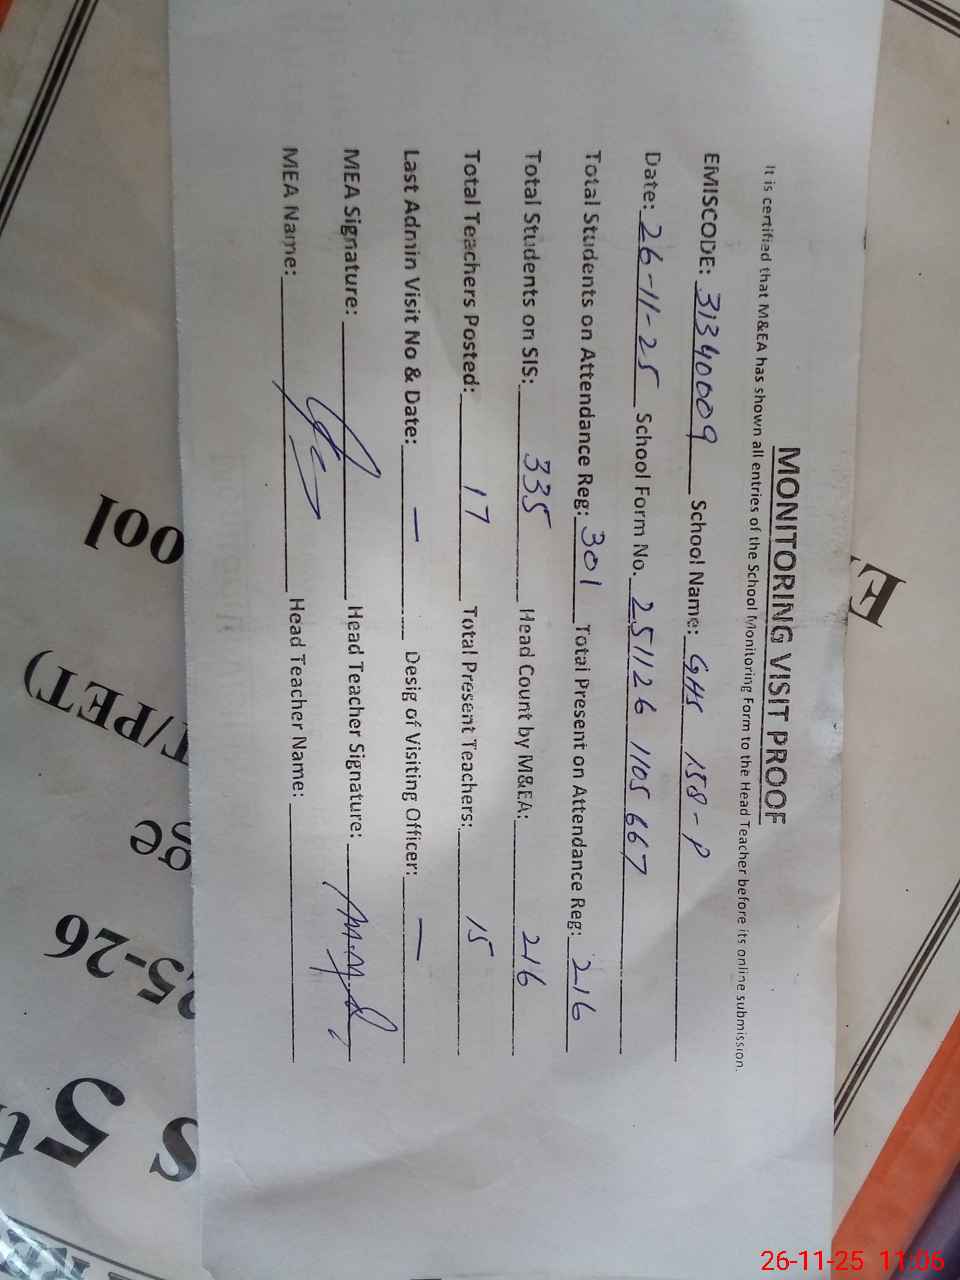 MONITORING VISIT PROOF
It is certified that M&EA has shown all entries of the School Monitoring Form to the Head Teacher before its online submission.
EMISCODE: 31340009 School Name: GHS 158-P
Date: 26-11-25 School Form No. 251126 1105 667
Total Students on Attendance Reg: 301 Total Present on Attendance Reg: 216
Total Students on SIS: 335 Head Count by M&EA: 216
Total Teachers Posted: 17 Total Present Teachers: 15
Last Admin Visit No & Date: — Desig of Visiting Officer: —
MEA Signature: Head Teacher Signature:
MEA Name: Head Teacher Name:
ool
/PET)
ge
25-26
s 5t
26-11-25 11:06